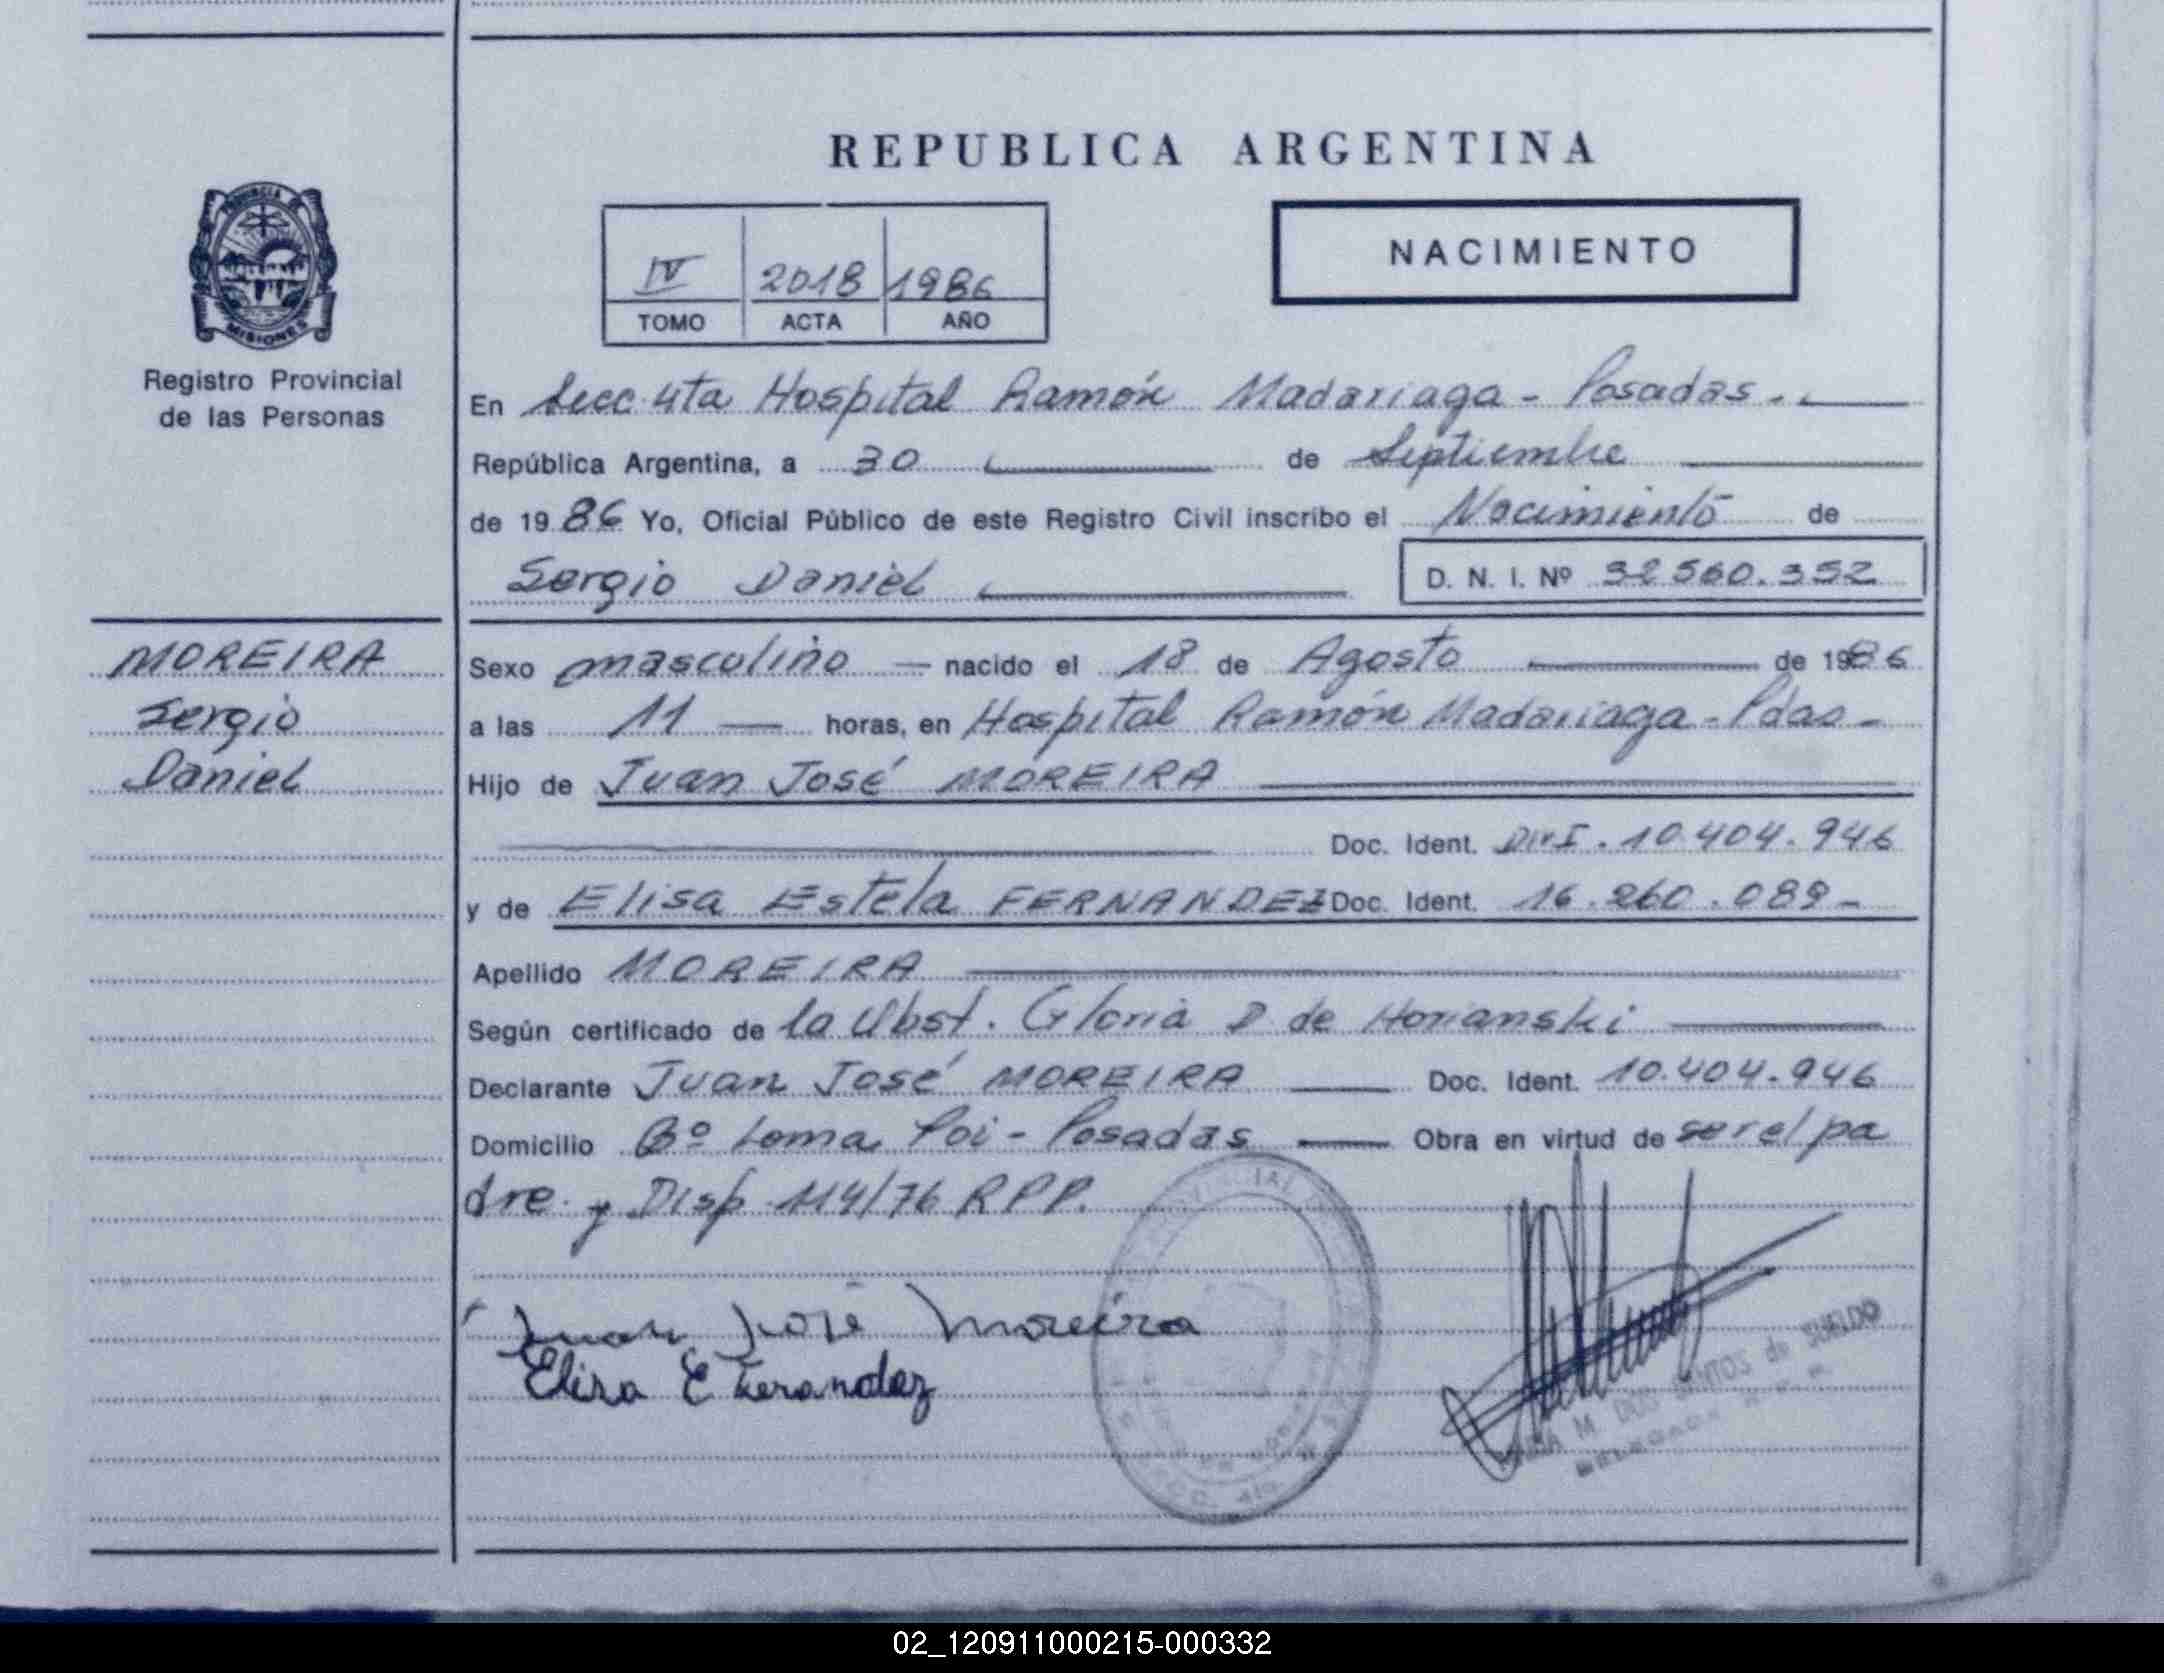 REPUBLICA ARGENTINA
IV 2018 1986
TOMO ACTA AÑO
NACIMIENTO
MISIONES
Registro Provincial
de las Personas
En Secc 4ta Hospital Ramón Madariaga - Posadas.
República Argentina, a 30 de Septiembre
de 1986 Yo, Oficial Público de este Registro Civil inscribo el Nacimiento de
Sergio Daniel D. N. I. Nº 32560.352
MOREIRA
Sergio
Daniel
Sexo masculino nacido el 18 de Agosto de 1986
a las 11 horas, en Hospital Ramón Madariaga - Pdas -
Hijo de Juan José MOREIRA
Doc. Ident. DNI. 10.404.946
y de Elisa Estela FERNANDEZ Doc. Ident. 16.260.089 -
Apellido MOREIRA
Según certificado de la Obst. Gloria D de Horianski
Declarante Juan José MOREIRA Doc. Ident. 10.404.946
Domicilio Bº Loma Poi - Posadas Obra en virtud de ser el pa
dre y Disp 114/76 RPP.
Juan José Moreira
Elisa E Fernandez
M. DOS SANTOS de SUELDO
02_120911000215-000332